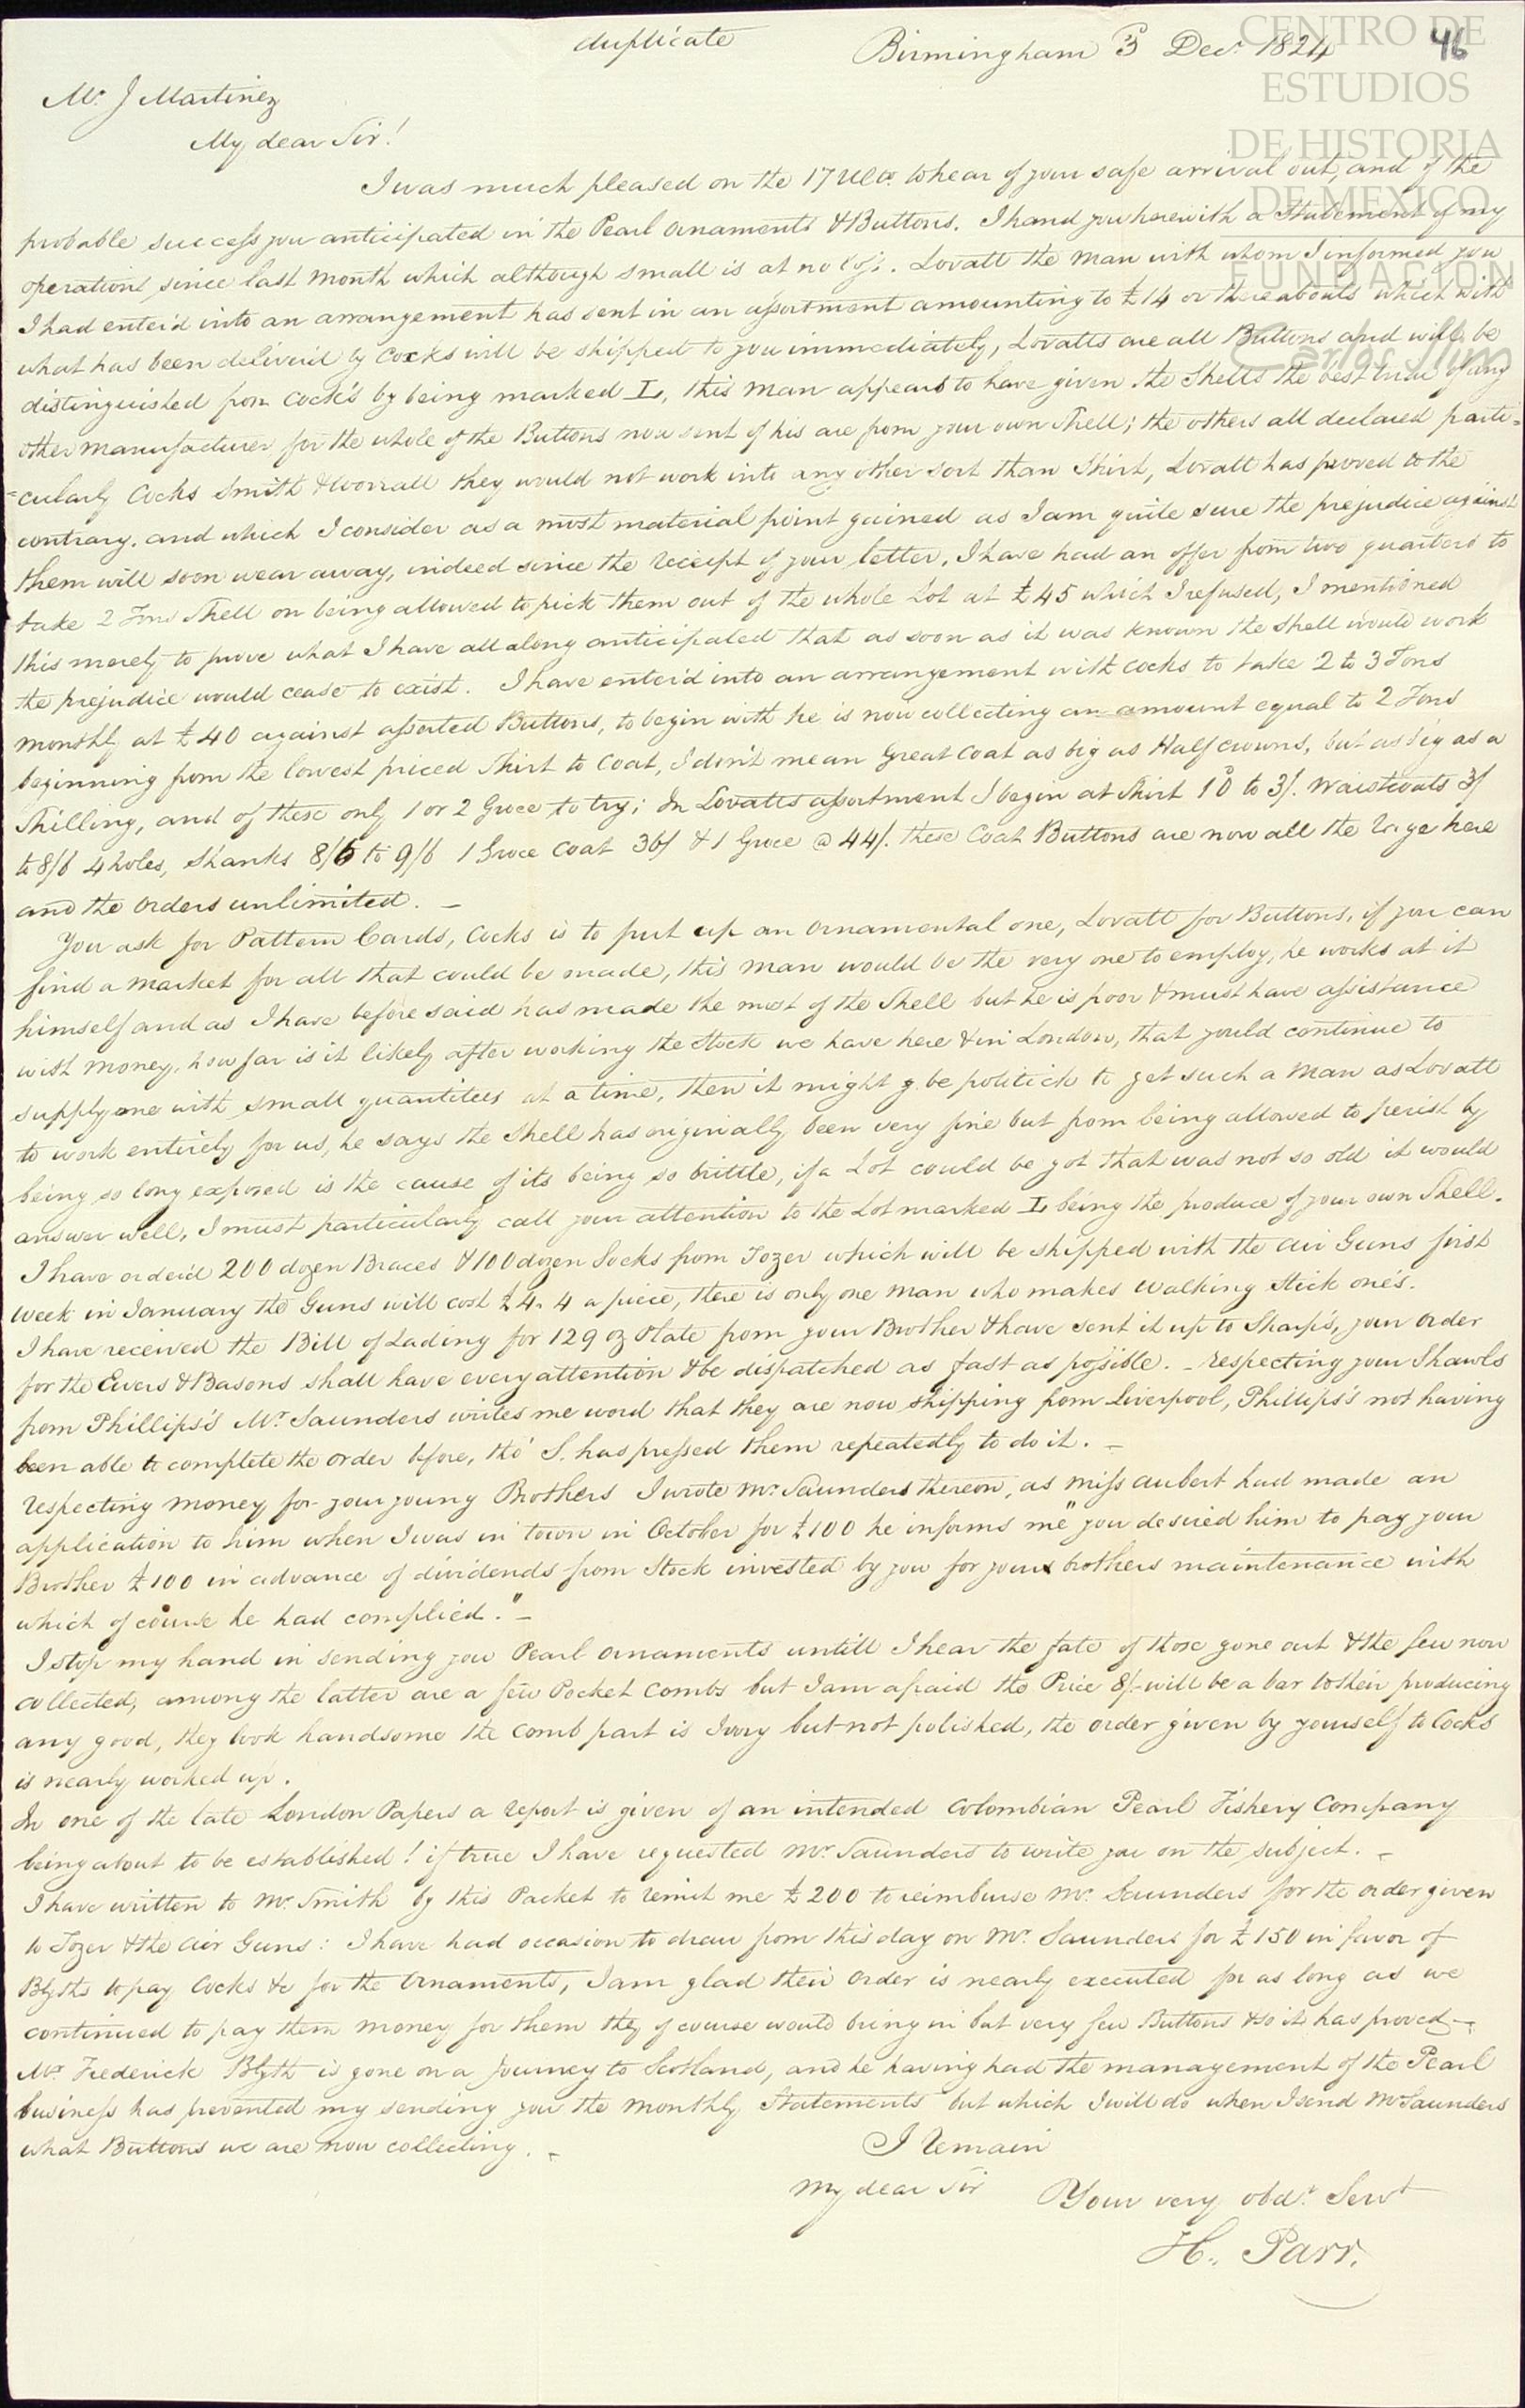 duplicate
Birmingham 3 Decr. 1824
46
CENTRO DE
ESTUDIOS
DE HISTORIA
DE MEXICO
FUNDACIÓN
Carlos Slim
Mr. J Martinez
My dear Sir!
I was much pleased on the 17 Ulto. to hear of your safe arrival out, and of the
probable success you anticipated in the Pearl Ornaments & Buttons. I hand you herewith a Statement of my
operations since last month which although small is at no loss. Lovatt the man with whom I informed you
I had enter'd into an arrangement has sent in an assortment amounting to £14 or thereabouts which with
what has been deliver'd by Cocks will be shipped to you immediately, Lovatts are all Buttons and will be
distinguished from Cock's by being marked L, this man appears to have given the Shells the best trial of any
other manufacturer for the whole of the Buttons now sent of his are from your own Shell; the others all declared parti=
=cularly Cocks Smith & Worrall they would not work into any other sort than Shirt, Lovatt has proved to the
contrary. and which I consider as a most material point gained as I am quite sure the prejudice against
them will soon wear away, indeed since the receipt of your letter, I have had an offer from two quarters to
take 2 Tons Shell on being allowed to pick them out of the whole Lot at £45 which I refused, I mentioned
this merely to prove what I have all along anticipated that as soon as it was known the Shell would work
the prejudice would cease to exist. I have enter'd into an arrangement with Cocks to take 2 to 3 Tons
monthly at £40 against assorted Buttons, to begin with he is now collecting an amount equal to 2 Tons
beginning from the lowest priced Shirt to Coat, I don't mean Great Coat as big as Half crowns, but as big as a
Shilling, and of these only 1 or 2 Groce to try; In Lovatts assortment I begin at Shirt to 3/. Waistcoats 3/
to 8/6 4 holes, Shanks 8/6 to 9/6 1 Groce Coat 36/ & 1 Groce @ 44/. these Coat Buttons are now all the rage here
and the orders unlimited. _
You ask for Pattern Cards, Cocks is to put up an Ornamental one, Lovatt for Buttons, if you can
find a market for all that could be made, this man would be the very one to employ, he works at it
himself and as I have before said has made the most of the Shell but he is poor & must have assistance
with money, how far is it likely after working the Stock we have here & in London, that you'd continue to
supply me with small quantities at a time, then it might be politick to get such a man as Lovatt
to work entirely for us, he says the Shell has originally been very fine but from being allowed to perish by
being so long exposed is the cause of its being so brittle, if a Lot could be got that was not so old it would
answer well, I must particularly call your attention to the Lot marked L being the produce of your own Shell.
I have order'd 200 dozen Braces & 100 dozen Socks from Tozer which will be shipped with the Air Guns first
week in January the Guns will cost £4.4 a piece, there is only one man who makes Walking Stick one's.
I have received the Bill of Lading for 129 oz Plate from your Brother & have sent it up to Sharp's, your order
for the Ewers & Basons shall have every attention & be dispatched as fast as possible. _ respecting your Shawls
from Phillips's Mr. Saunders writes me word that they are now shipping from Liverpool, Phillips's not having
been able to complete the order before, tho' S. has pressed them repeatedly to do it. _
respecting money for your young Brothers I wrote Mr. Saunders thereon, as Miss Aubert had made an
application to him when I was in town in October for £100 he informs me "you desired him to pay your
Brother £100 in advance of dividends from Stock invested by you for your brothers maintenance with
which of course he had complied." _
I stop my hand in sending you Pearl Ornaments untill I hear the fate of those gone out & the few now
collected, among the latter are a few Pocket Combs but I am afraid the Price 8/- will be a bar to their producing
any good, they look handsome the comb part is Ivory but not polished, the order given by yourself to Cocks
is nearly worked up.
In one of the late London Papers a report is given of an intended Colombian Pearl Fishery Company
being about to be established! if true I have requested Mr. Saunders to write you on the subject. _
I have written to Mr. Smith by this Packet to remit me £200 to reimburse Mr. Saunders for the order given
to Tozer & the Air Guns: I have had occasion to draw from this day on Mr. Saunders for £150 in favor of
Blyths to pay Cocks &c for the Ornaments, I am glad their order is nearly executed for as long as we
continued to pay them money for them they of course would bring in but very few Buttons & so it has proved _
Mr. Frederick Blyth is gone on a Journey to Scotland, and he having had the management of the Pearl
business has prevented my sending you the monthly Statements but which I will do when I send Mr Saunders
what Buttons we are now collecting. _
I Remain
My dear Sir
Your very obdt. Servt
H. Parr.